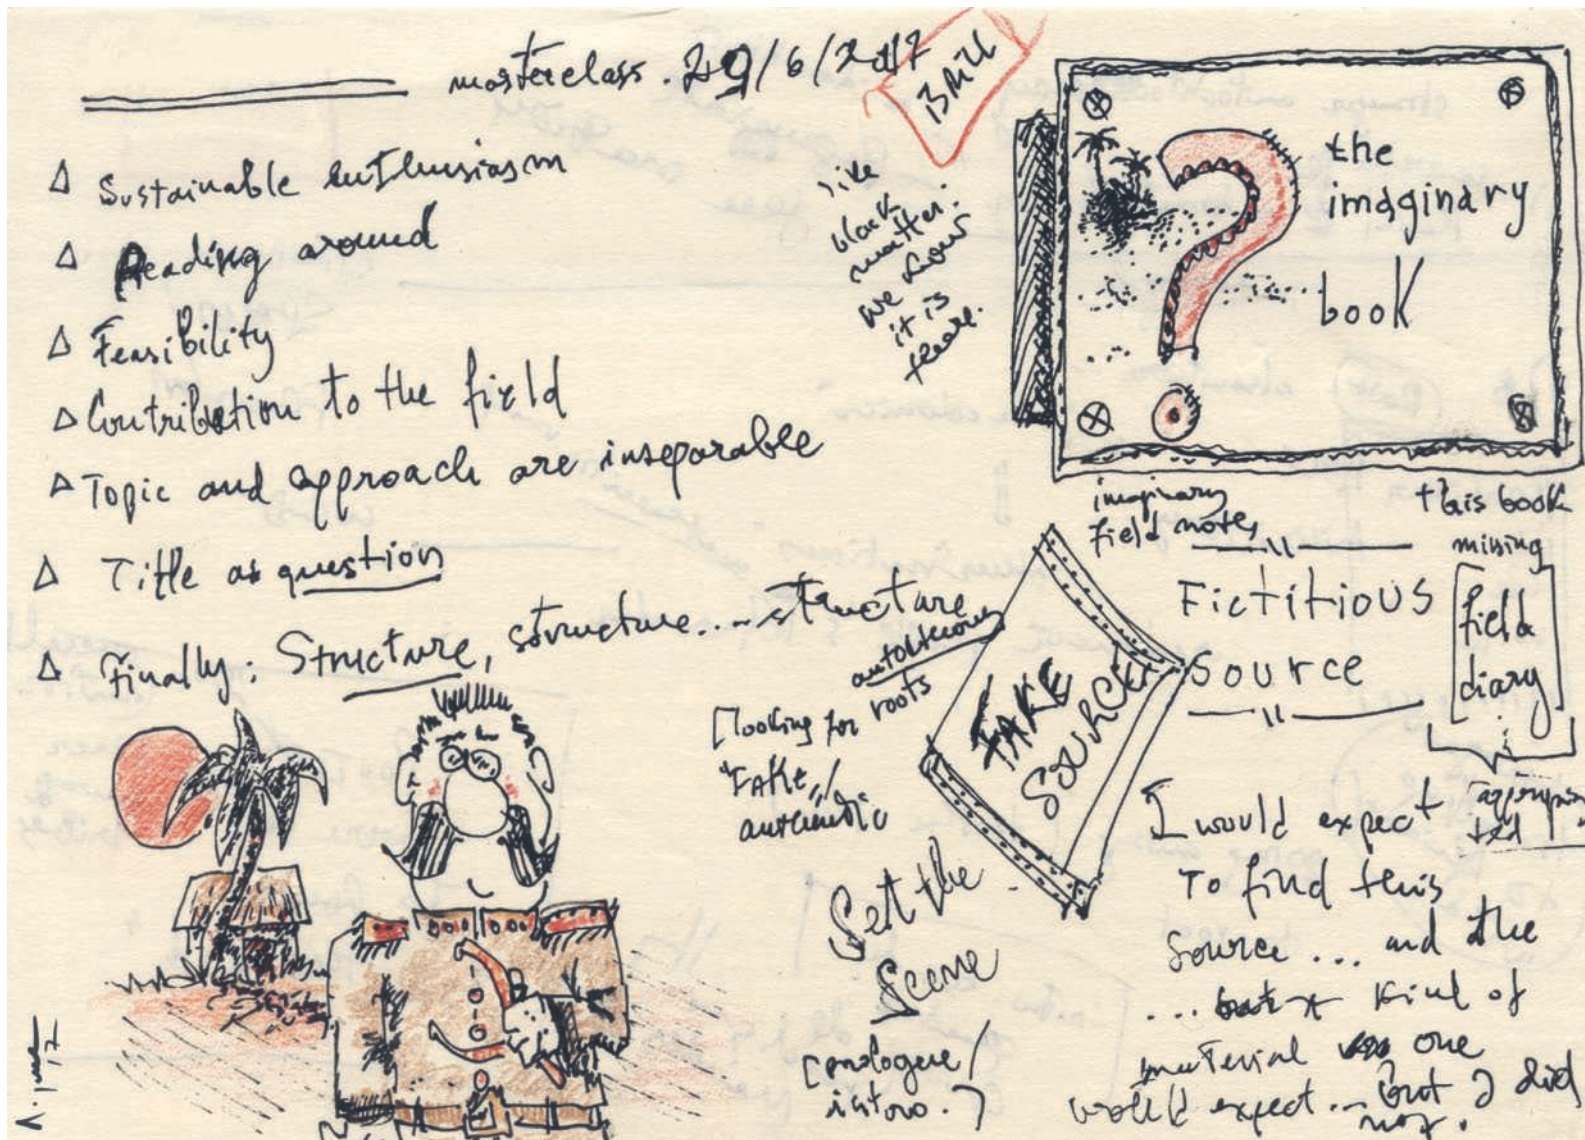 masterclass. 29/6/2017
Brill
Δ Sustainable enthusiasm
Δ Reading around
Δ Feasibility
Δ Contribution to the field
Δ Topic and approach are inseparable
Δ Title as question
Δ Finally: Structure, structure....structure
like
black
matter:
we know
it is
there.
the
imaginary
book
imaginary
field notes
this book
missing
Fictitious
Source
[field
diary]
autochtonous
roots
[looking for
"FAKE"/
authentic
FAKE
SOURCE
Set the
Scene
[prologue/
intro.]
I would expect
To find this
source ... and the
... kind of
material one
would expect... but I did
not.